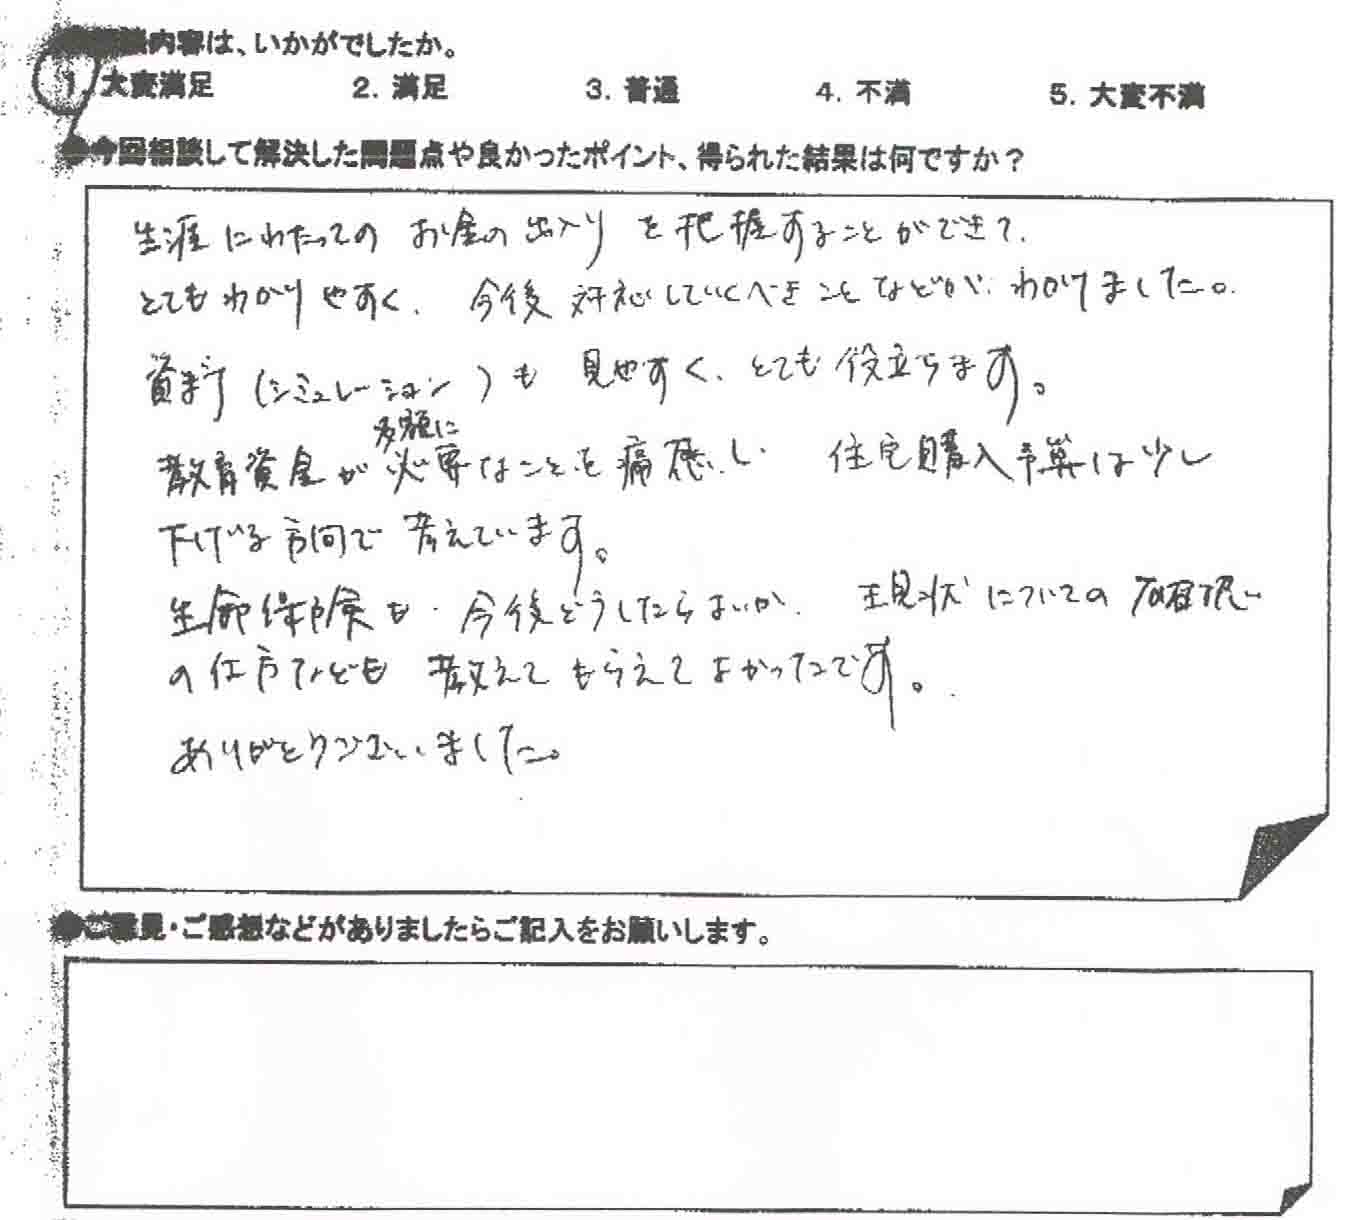 内容は、いかがでしたか。
1. 大変満足 2. 満足 3. 普通 4. 不満 5. 大変不満
●今回相談して解決した問題点や良かったポイント、得られた結果は何ですか？
生涯にわたってのお金の出入りを把握することができて、
とてもわかりやすく、今後対応していくべきことなどが、わかりました。
資料(シミュレーション)も見やすく、とても役立ちます。
多額に
教育資金が必要なことを痛感し、住宅購入予算は少し
下げる方向で考えています。
生命保険も、今後どうしたらよいか、現状についての確認
の仕方なども教えてもらえてよかったです。
ありがとうございました。
●ご意見・ご感想などがありましたらご記入をお願いします。